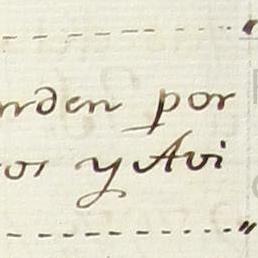 nrden por
ros y Avi